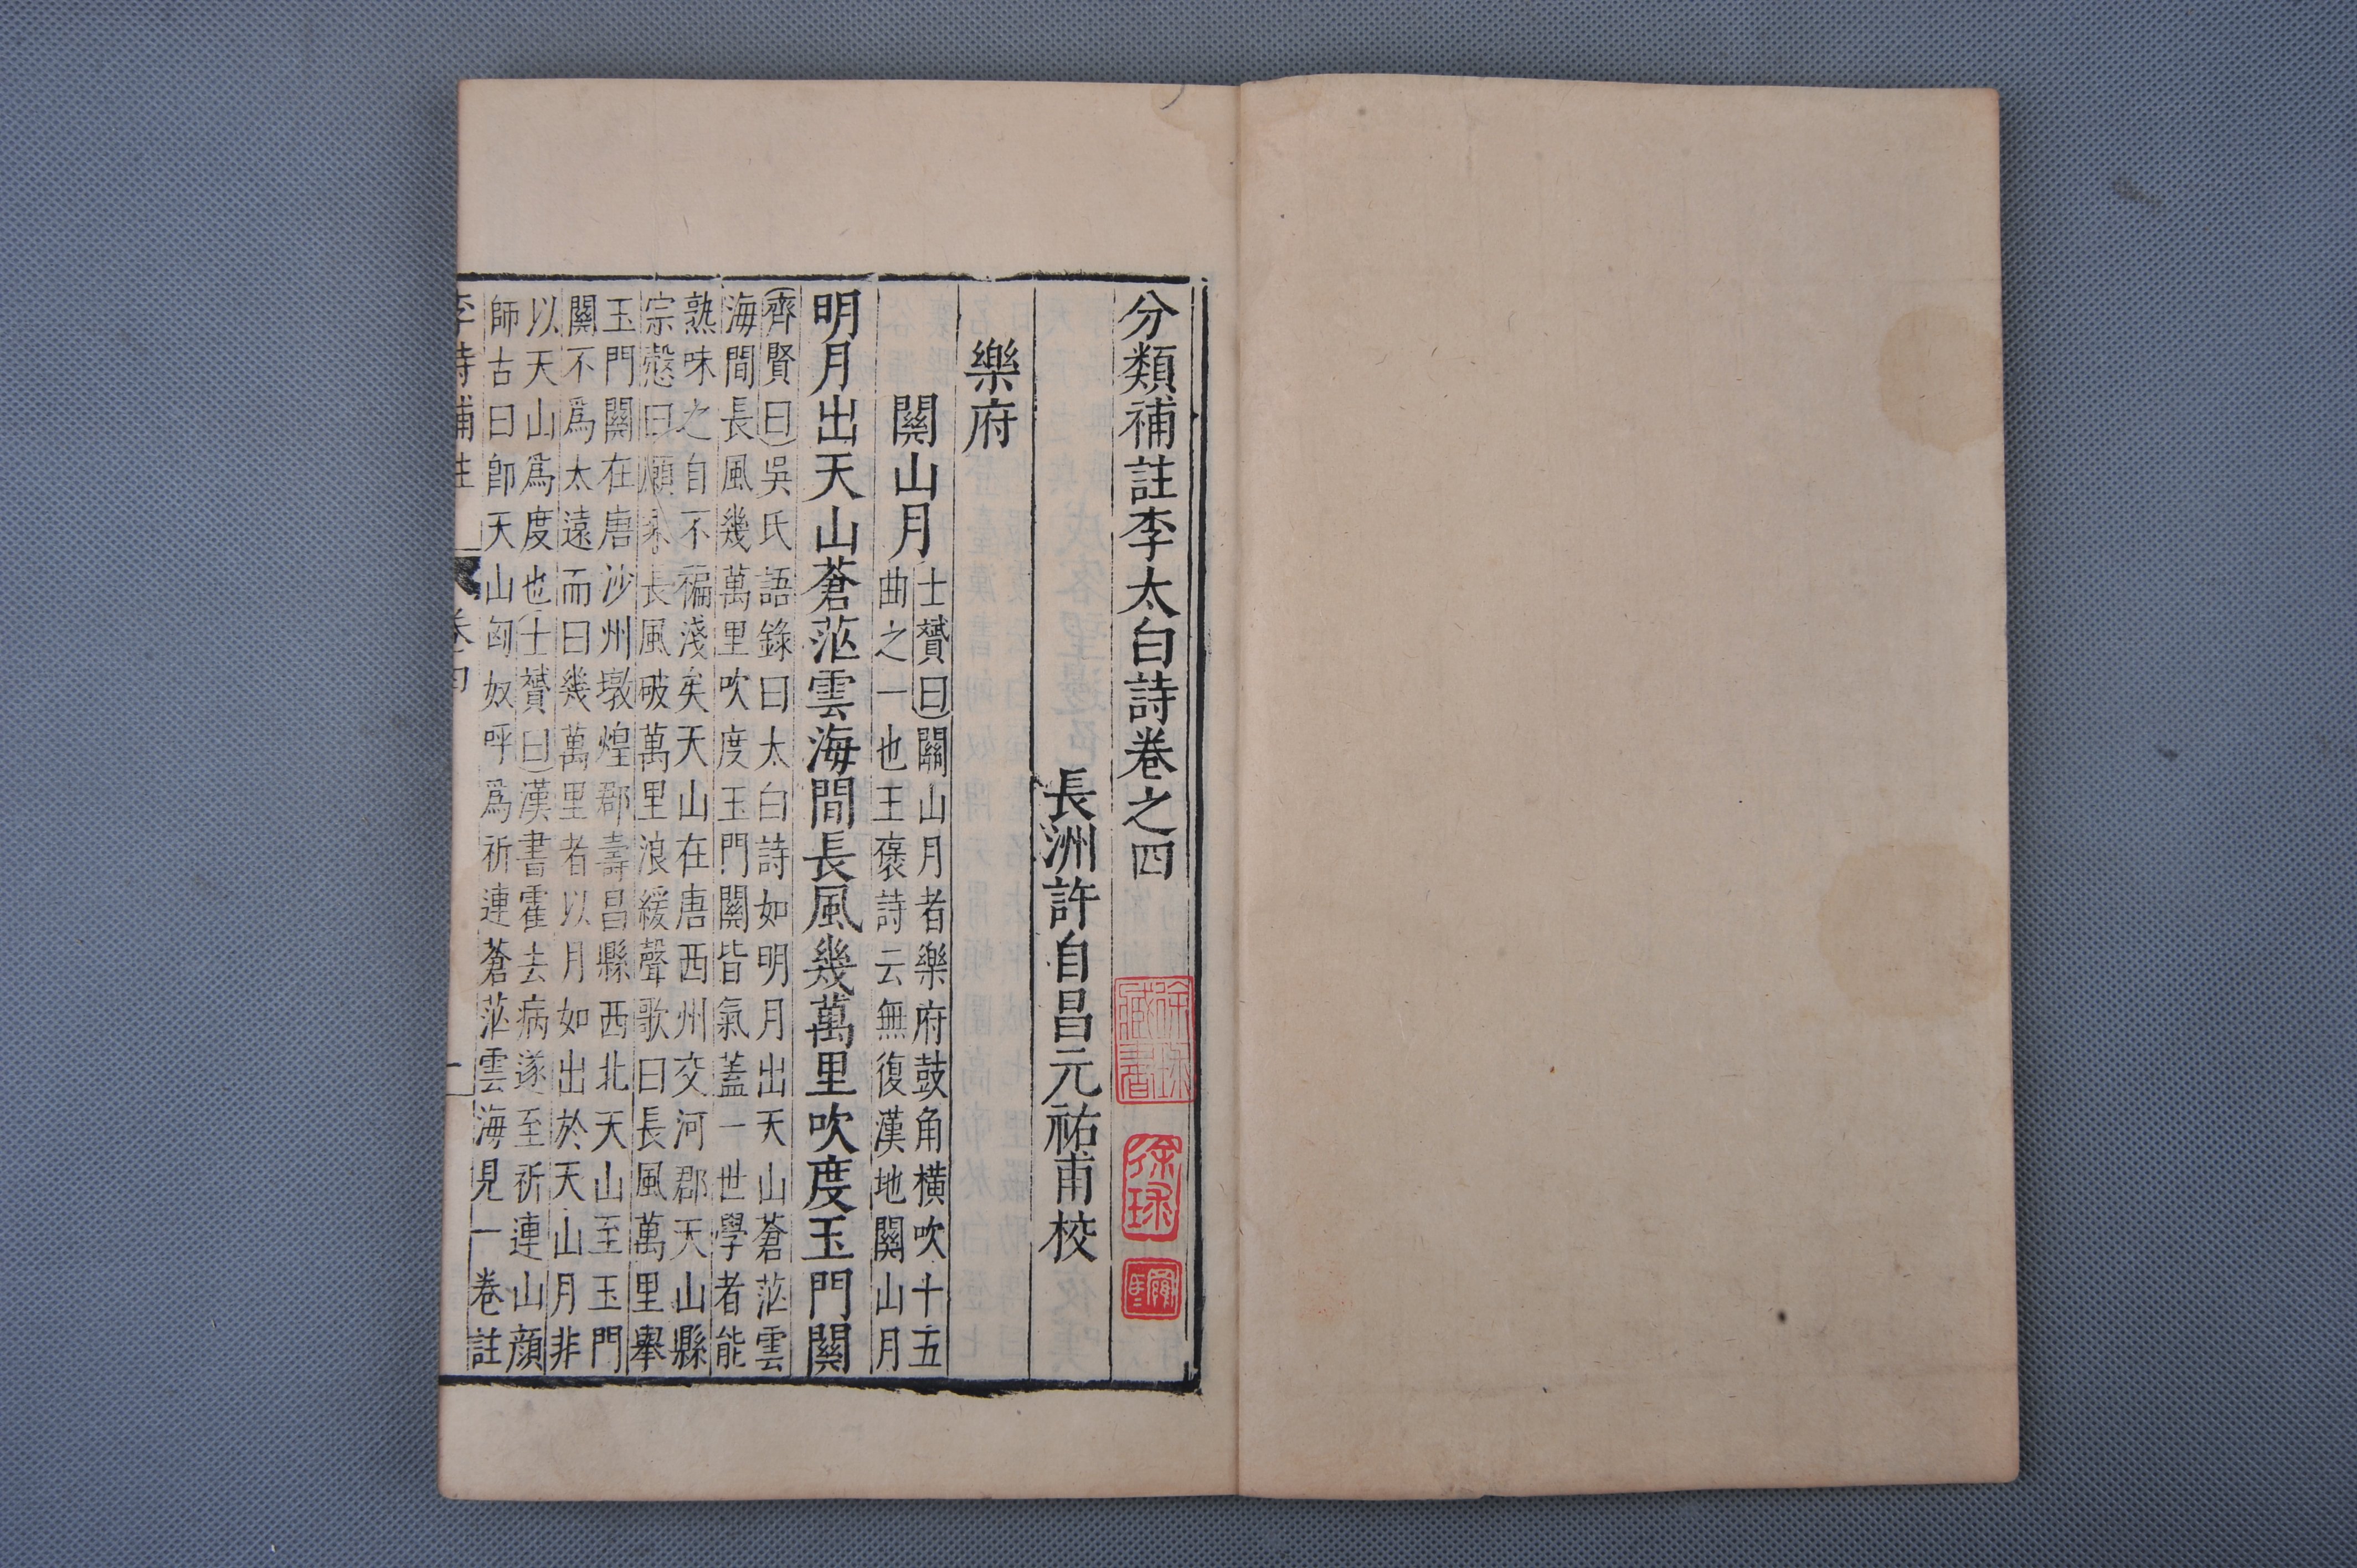 分類補註李太白詩卷之四
長洲許自昌元祐甫校
樂府
關山月
士贇曰關山月者樂府鼓角橫吹十五
曲之一也王褒詩云無復漢地關山月
明月出天山蒼茫雲海間長風幾萬里吹度玉門關
齊賢曰吳氏語錄曰太白詩如明月出天山蒼茫雲
海間長風幾萬里吹度玉門關皆氣蓋一世學者能
熟味之自不褊淺矣天山在唐西州交河郡天山縣
宗愨曰願乘長風破萬里浪緩聲歌曰長風萬里舉
玉門關在唐沙州墩煌郡壽昌縣西北天山至玉門
關不爲太遠而曰幾萬里者以月如出於天山月非
以天山爲度也士贇曰漢書霍去病遂至祈連山顔
師古曰卽天山匈奴呼爲祈連蒼茫雲海見一卷註
李詩補註
卷四
一
徐球藏書
徐球